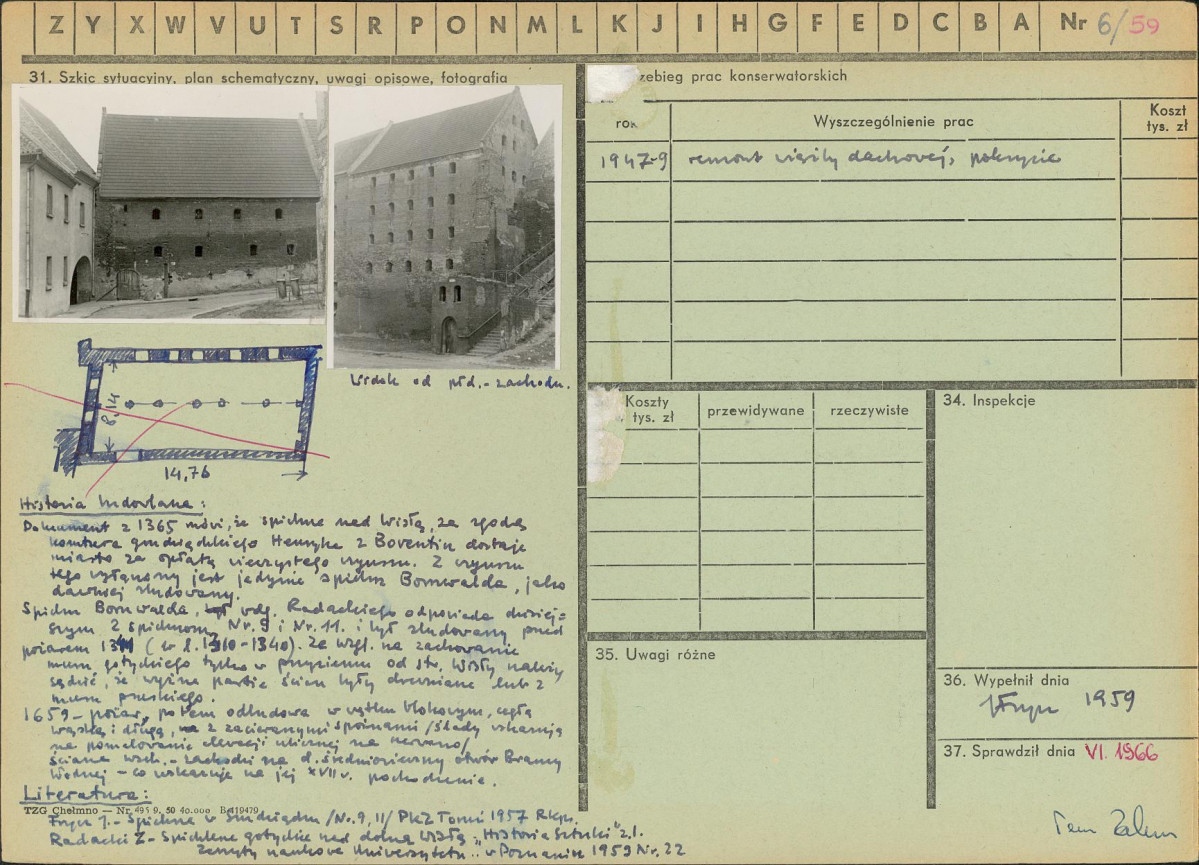 Z Y X W V U T S R P O N M L K J I H G F E D C B A Nr 6/59
31. Szkic sytuacyjny, plan schematyczny, uwagi opisowe, fotografia
Widok od płd.-zachodu.
8,14
14,76
Historia budowlana:
Dokument z 1365 mówi, że spichrze nad Wisłą, za zgodą
komtura grudziądzkiego Henryka z Boventin dostaje
miasto za opłatą wieczystego czynszu. Z czynszu
tego wyłączony jest jedynie spichrz Bornwalda, jako
dawniej zbudowany.
Spichrz Bornwalda, wdg. Radackiego odpowiada dzisiej-
szym 2 spichrzom Nr. 9 i Nr. 11. i był zbudowany przed
pożarem (w l. 1310-1340). Ze wzgl. na zachowanie
muru gotyckiego tylko w przyziemiu od str. Wisły należy
sądzić, że wyższe partie ścian były drewniane lub z
muru pruskiego.
1659 - pożar, potem odbudowa w wątku blokowym, cegłą
wąską i długą, z zacieranymi spoinami /ślady wskazują
na pomalowanie elewacji ulicznej na czerwono/
Ściana wsch.-zachodni na d. średniowieczny otwór Bramy
Wodnej - co wskazuje na jej XVII w. pochodzenie.
Literatura:
TZG Chełmno — Nr 495 9. 50 40.000 B-119479
Frycz J. - Spichrze w Grudziądzu /Nr. 9, 11/ PKZ Toruń 1957 Rkps.
Radacki Z - Spichlerze gotyckie nad dolną Wisłą „Historia Sztuki" z. 1.
Zeszyty naukowe Uniwersytetu.. w Poznaniu 1959 Nr. 22
zebieg prac konserwatorskich
rok Wyszczególnienie prac Koszt tys. zł
1947-9 remont więźby dachowej, pokrycie
Koszty tys. zł przewidywane rzeczywiste
34. Inspekcje
35. Uwagi różne
36. Wypełnił dnia
JFrycz 1959
37. Sprawdził dnia VI. 1966